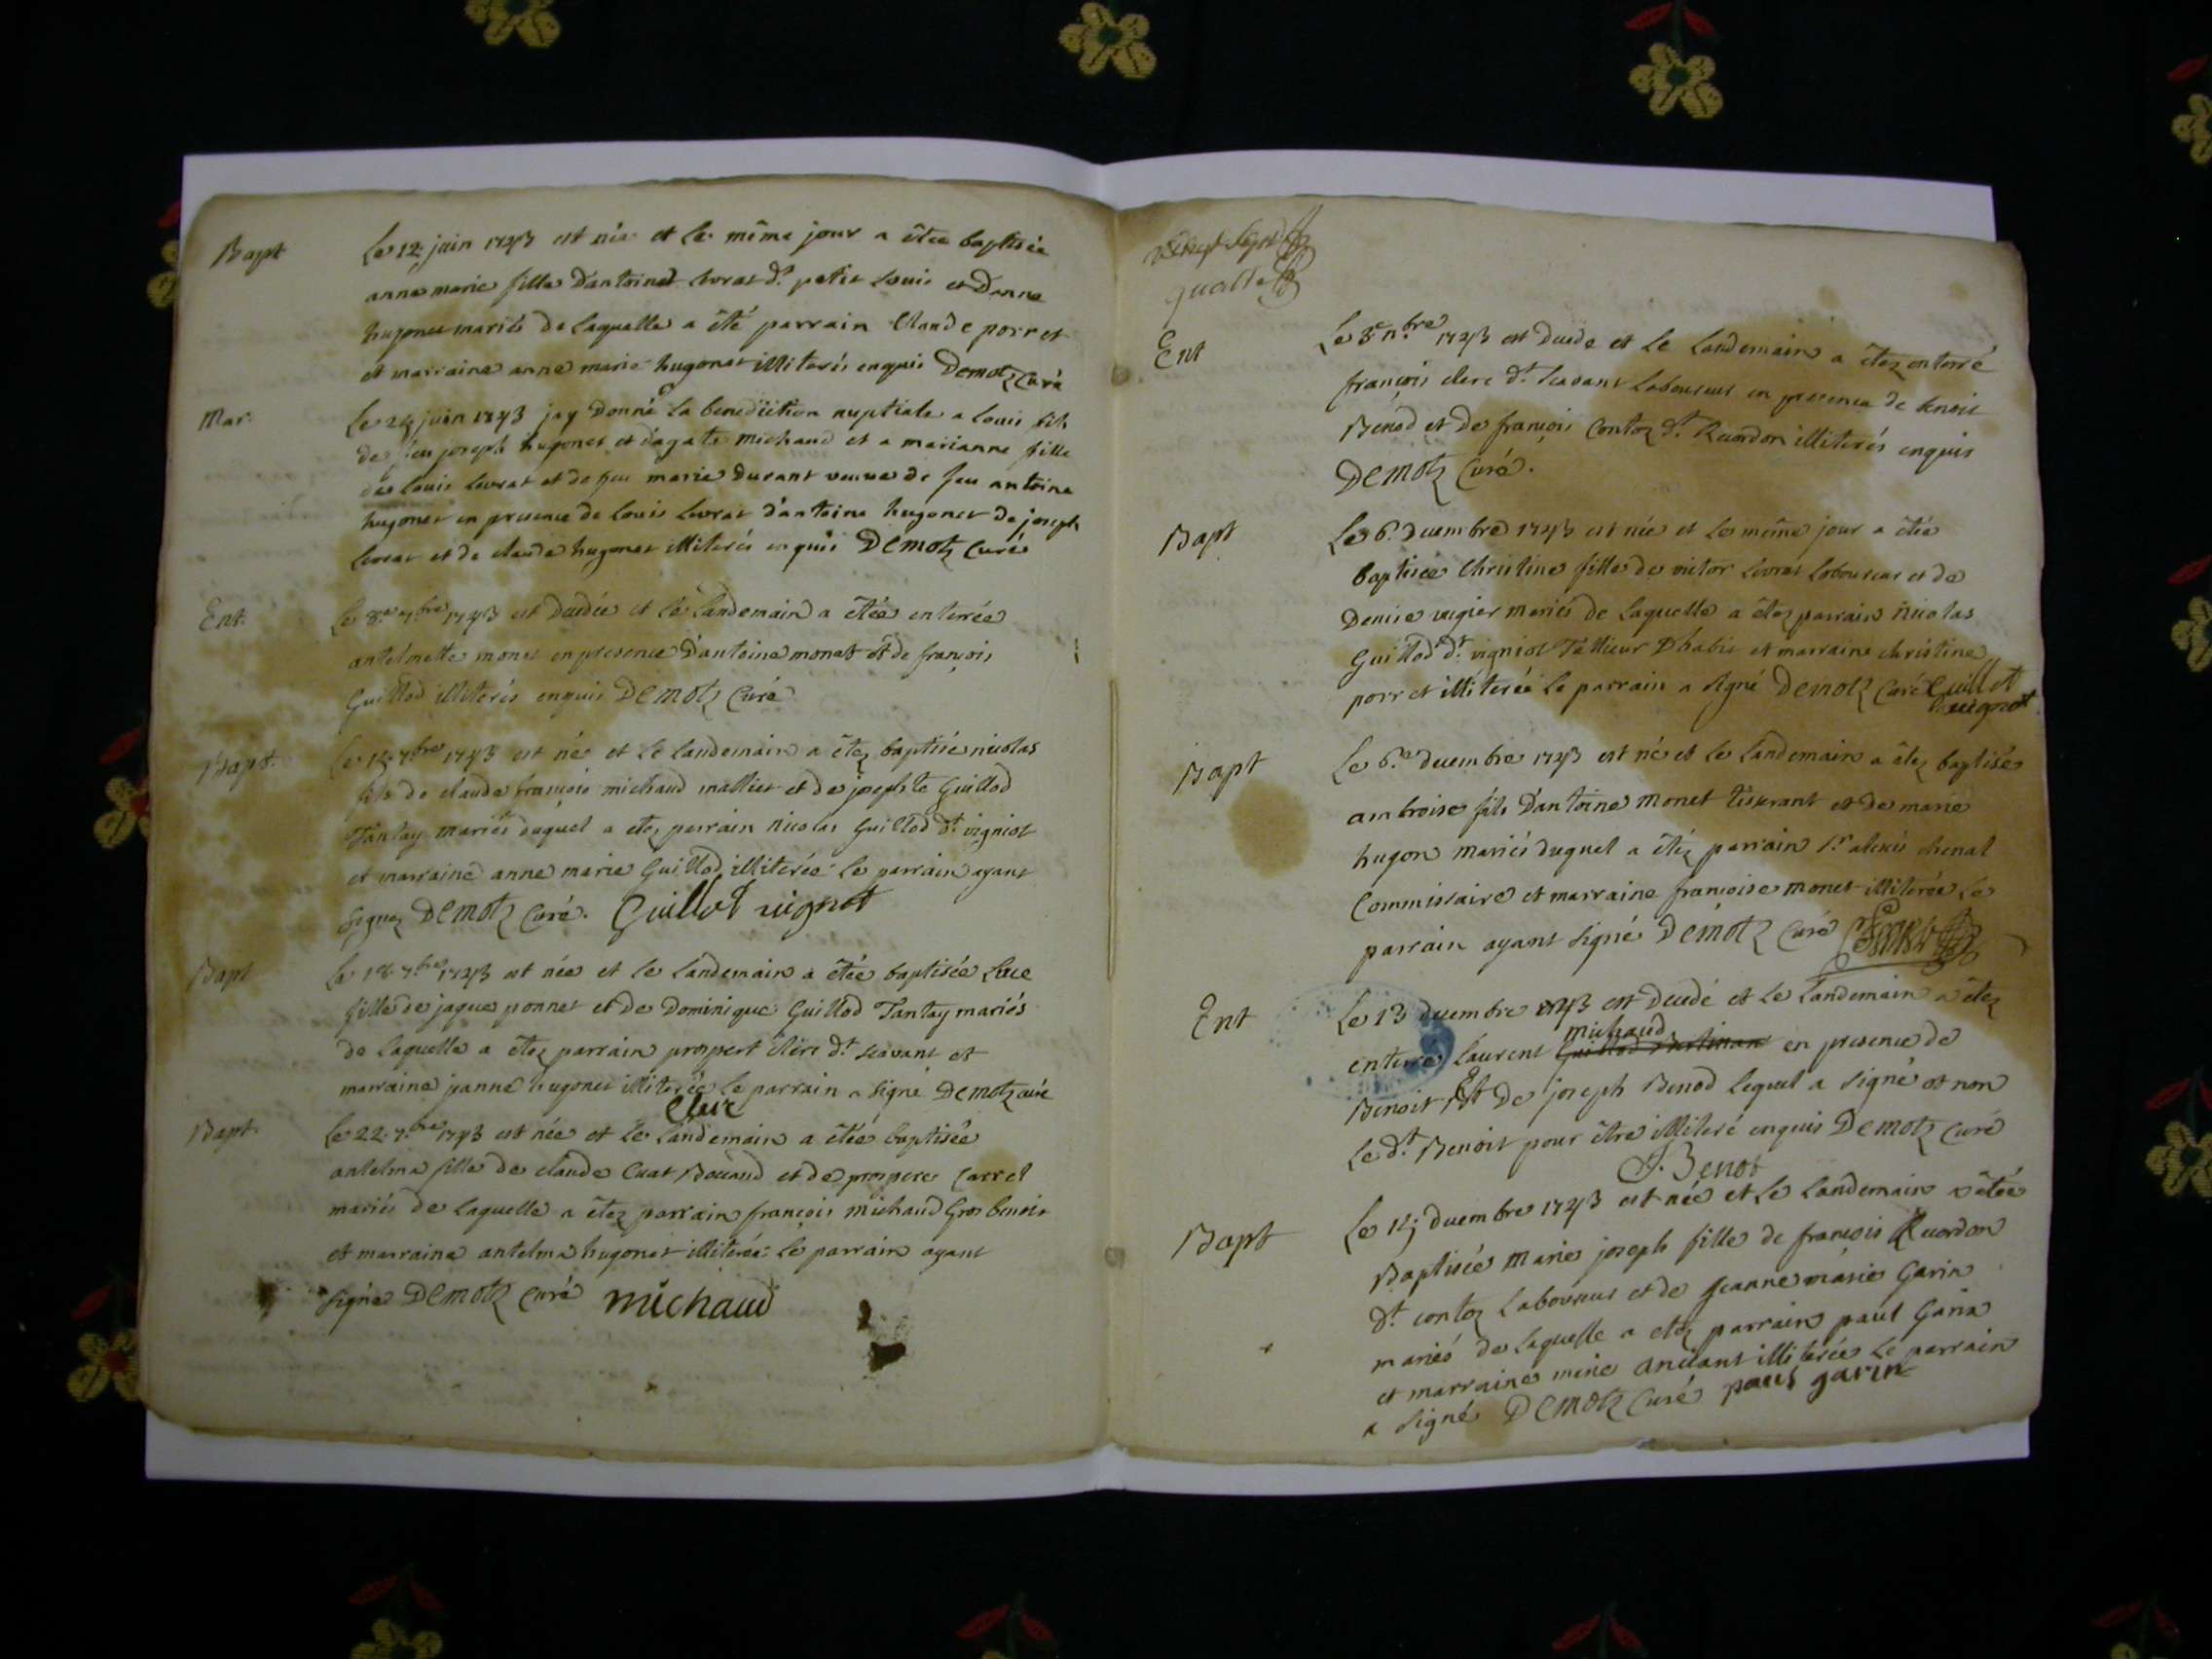 Bapt
Le 12 juin 1743 est née et le même jour a étée baptisée
anne marie fille d'antoine Levrat dt petit Louis et Danne
hugonet mariés de laquelle a été parrain Claude porret
et marraine anne marie hugonet illiterés enquis Demotz Curé
Mar.
Le 24 juin 1743 jay Donné la benediction nuptiale a Louis fils
de feu joseph hugonet et d'agate michaud et a marianne fille
de Louis Levrat et de feu marie Durant veuve de feu antoine
hugonet en presence de Louis Levrat d'antoine hugonet de joseph
Levrat et de claude hugonet illiterés enquis Demotz Curé
Ent.
Le 8e 7bre 1743 est decedée et le landemain a étée enterrée
antelmette monet en presence d'antoine monet et de françois
Guillod illiterés enquis Demotz Curé
Bapt.
Le 7bre 1743 est né et le landemain a étez baptisé nicolas
fils de claude françois michaud mallier et de josephte Guillod
Tantay mariés duquel a etez parrain nicolas Guillod dt vigniot
et marraine anne marie Guillod illiterée le parrain ayant
signez Demotz Curé. Guillot vignot
Bapt
Le 18 7bre 1743 est née et le landemain a étée baptisée Luce
fille de jaque ponnet et de Dominique Guillod Tantay mariés
de laquelle a étez parrain prospert clerc dt scavant et
marraine jeanne hugonet illiterée le parrain a signé Demotz curé
Clerc
Bapt.
Le 22 7bre 1743 est née et le landemain a étée baptisée
antelma fille de claude Cuat Bouand et de prospere Carrel
mariés de laquelle a étez parrain françois michaud Gros benoit
et marraine antelma hugonet illiterée le parrain ayant
signé Demotz Curé michaud
Ent
Le 3e nbre 1743 est decede et le landemain a étez enterré
françois clerc dt scavant laboureur en presence de benoit
Benod et de françois Contoz dt Recordon illiterés enquis
Demotz Curé.
Bapt
Le 6e decembre 1743 est née et le même jour a étée
baptisée Christine fille de victor Levrat laboureur et de
Denise vugier mariés de laquelle a étez parrain nicolas
Guillod dt vigniot Tallieur Dhabit et marraine christine
porret illiterée le parrain a signé Demotz Curé Guillot
vignot
Bapt
Le 6e decembre 1743 est né et le landemain a étez baptisé
ambroise fils d'antoine monet tisserant et de marie
hugon mariés duquel a étéz parrain Sr alexis chenal
Commissaire et marraine françoise monet illiterée le
parrain ayant signé Demotz Curé
Ent
Le 13 decembre 1743 est decedé et le landemain a étez
michaud
enterré laurent Guillod en presence de
Benoit Et de joseph Benod lequel a signé et non
le dt Benoit pour être illiteré enquis Demotz Curé
J. Benot
Bapt
Le 14 decembre 1743 est née et le landemain a étée
Baptisée marie joseph fille de françois Recordon
dt contoz laboureur et de jeanne marie Garin
mariés de laquelle a etéz parrain paul Garin
et marraine anciant illiterée le parrain
a signé Demotz Curé paul garin